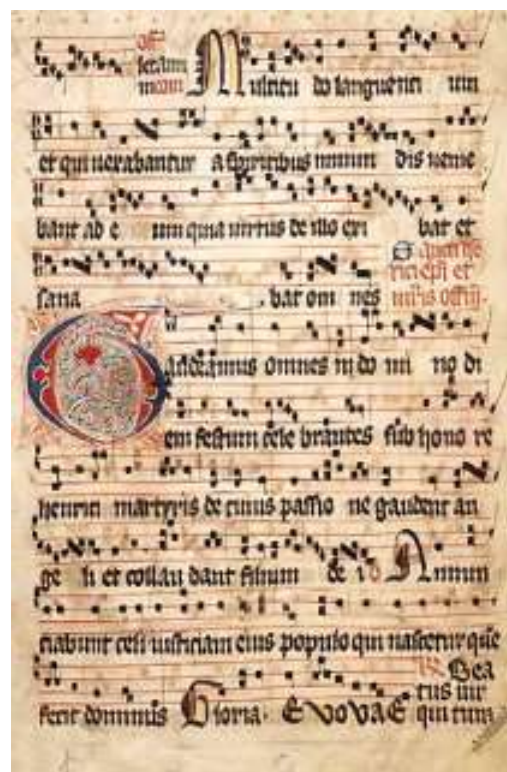 Multitu do languenti um
et qui uexabantur a spiritibus mmun dis uenie
bant ad e um quia uirtus de illo exi bat et
sana bat om nes
Gaudeamus omnes in do mi no di
em festum cele brantes sub hono re
henrici martyris de cuius passio ne gaudent an
ge li et collau dant filium de i o Annun
ciabunt celi iusticiam eius populo qui nascetur que
Bea
tus uir
fecit dominus Gloria. EVOVAE qui tim